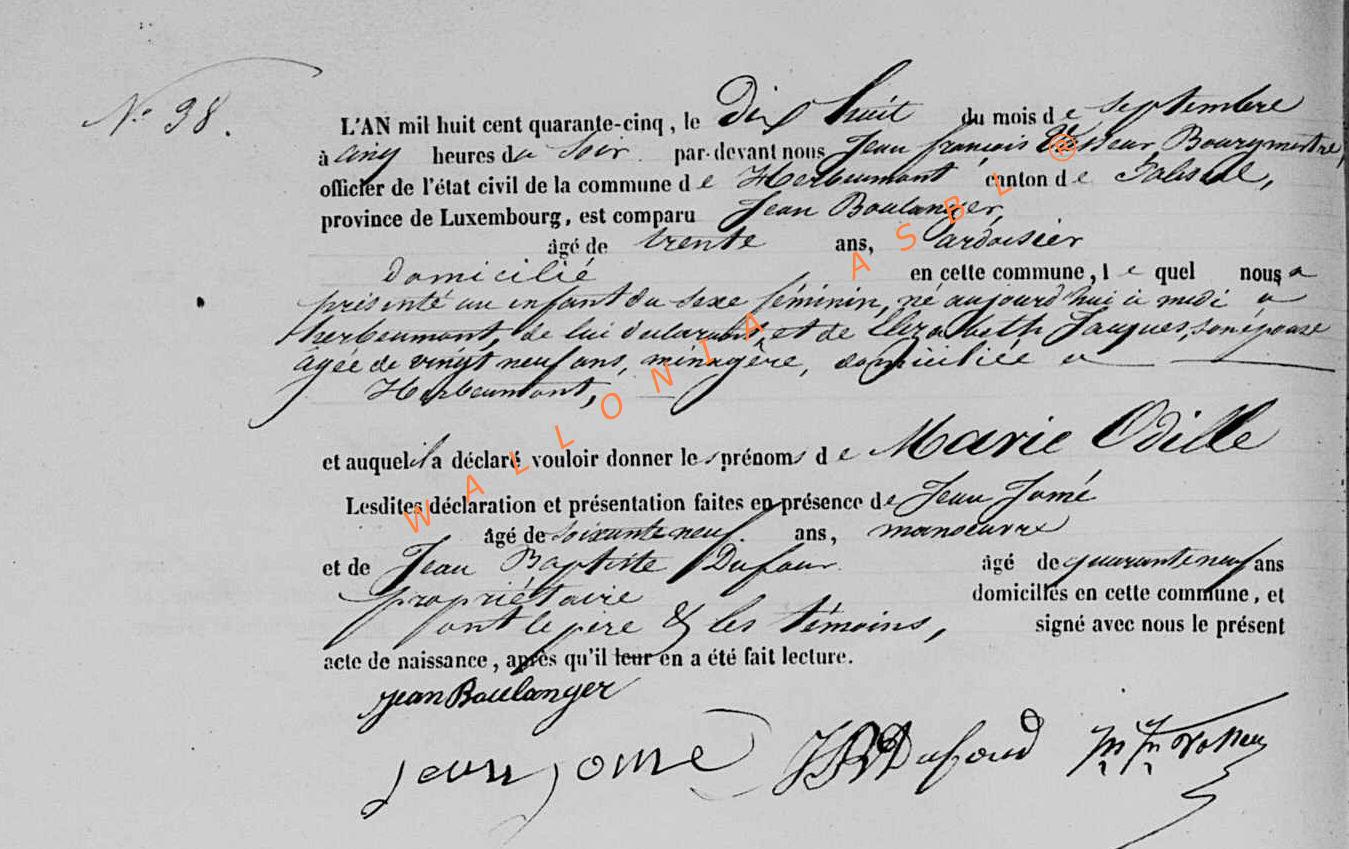 N° 38.
L'AN mil huit cent quarante-cinq, le Dix huit du mois de Septembre
à cinq heures du Soir par-devant nous Jean françois Bourgmestre,
officier de l'état civil de la commune de Herbeumont canton de Paliseul,
province de Luxembourg, est comparu Jean Boulanger,
âgé de trente ans, ardoisier
domicilié en cette commune, lequel nous a
présenté un enfant du sexe féminin, né aujourd'hui à midi a
herbeumont, de lui déclarant, et de Elizabeth Jaques, son épouse
âgée de vingt neuf ans, ménagère, domiciliée a
Herbeumont,
et auquel il a déclaré vouloir donner les prénoms de Marie Odille
Lesdites déclaration et présentation faites en présence de Jean Jomé
âgé de soixante neuf ans, manoeuvre
et de Jean Baptiste Dufour âgé de quarante neuf ans
propriétaire domiciliés en cette commune, et
ont le père & les témoins, signé avec nous le présent
acte de naissance, après qu'il leur en a été fait lecture.
Jean Boulanger
jean jome JB Dufour
WALLONIA ASBL ®